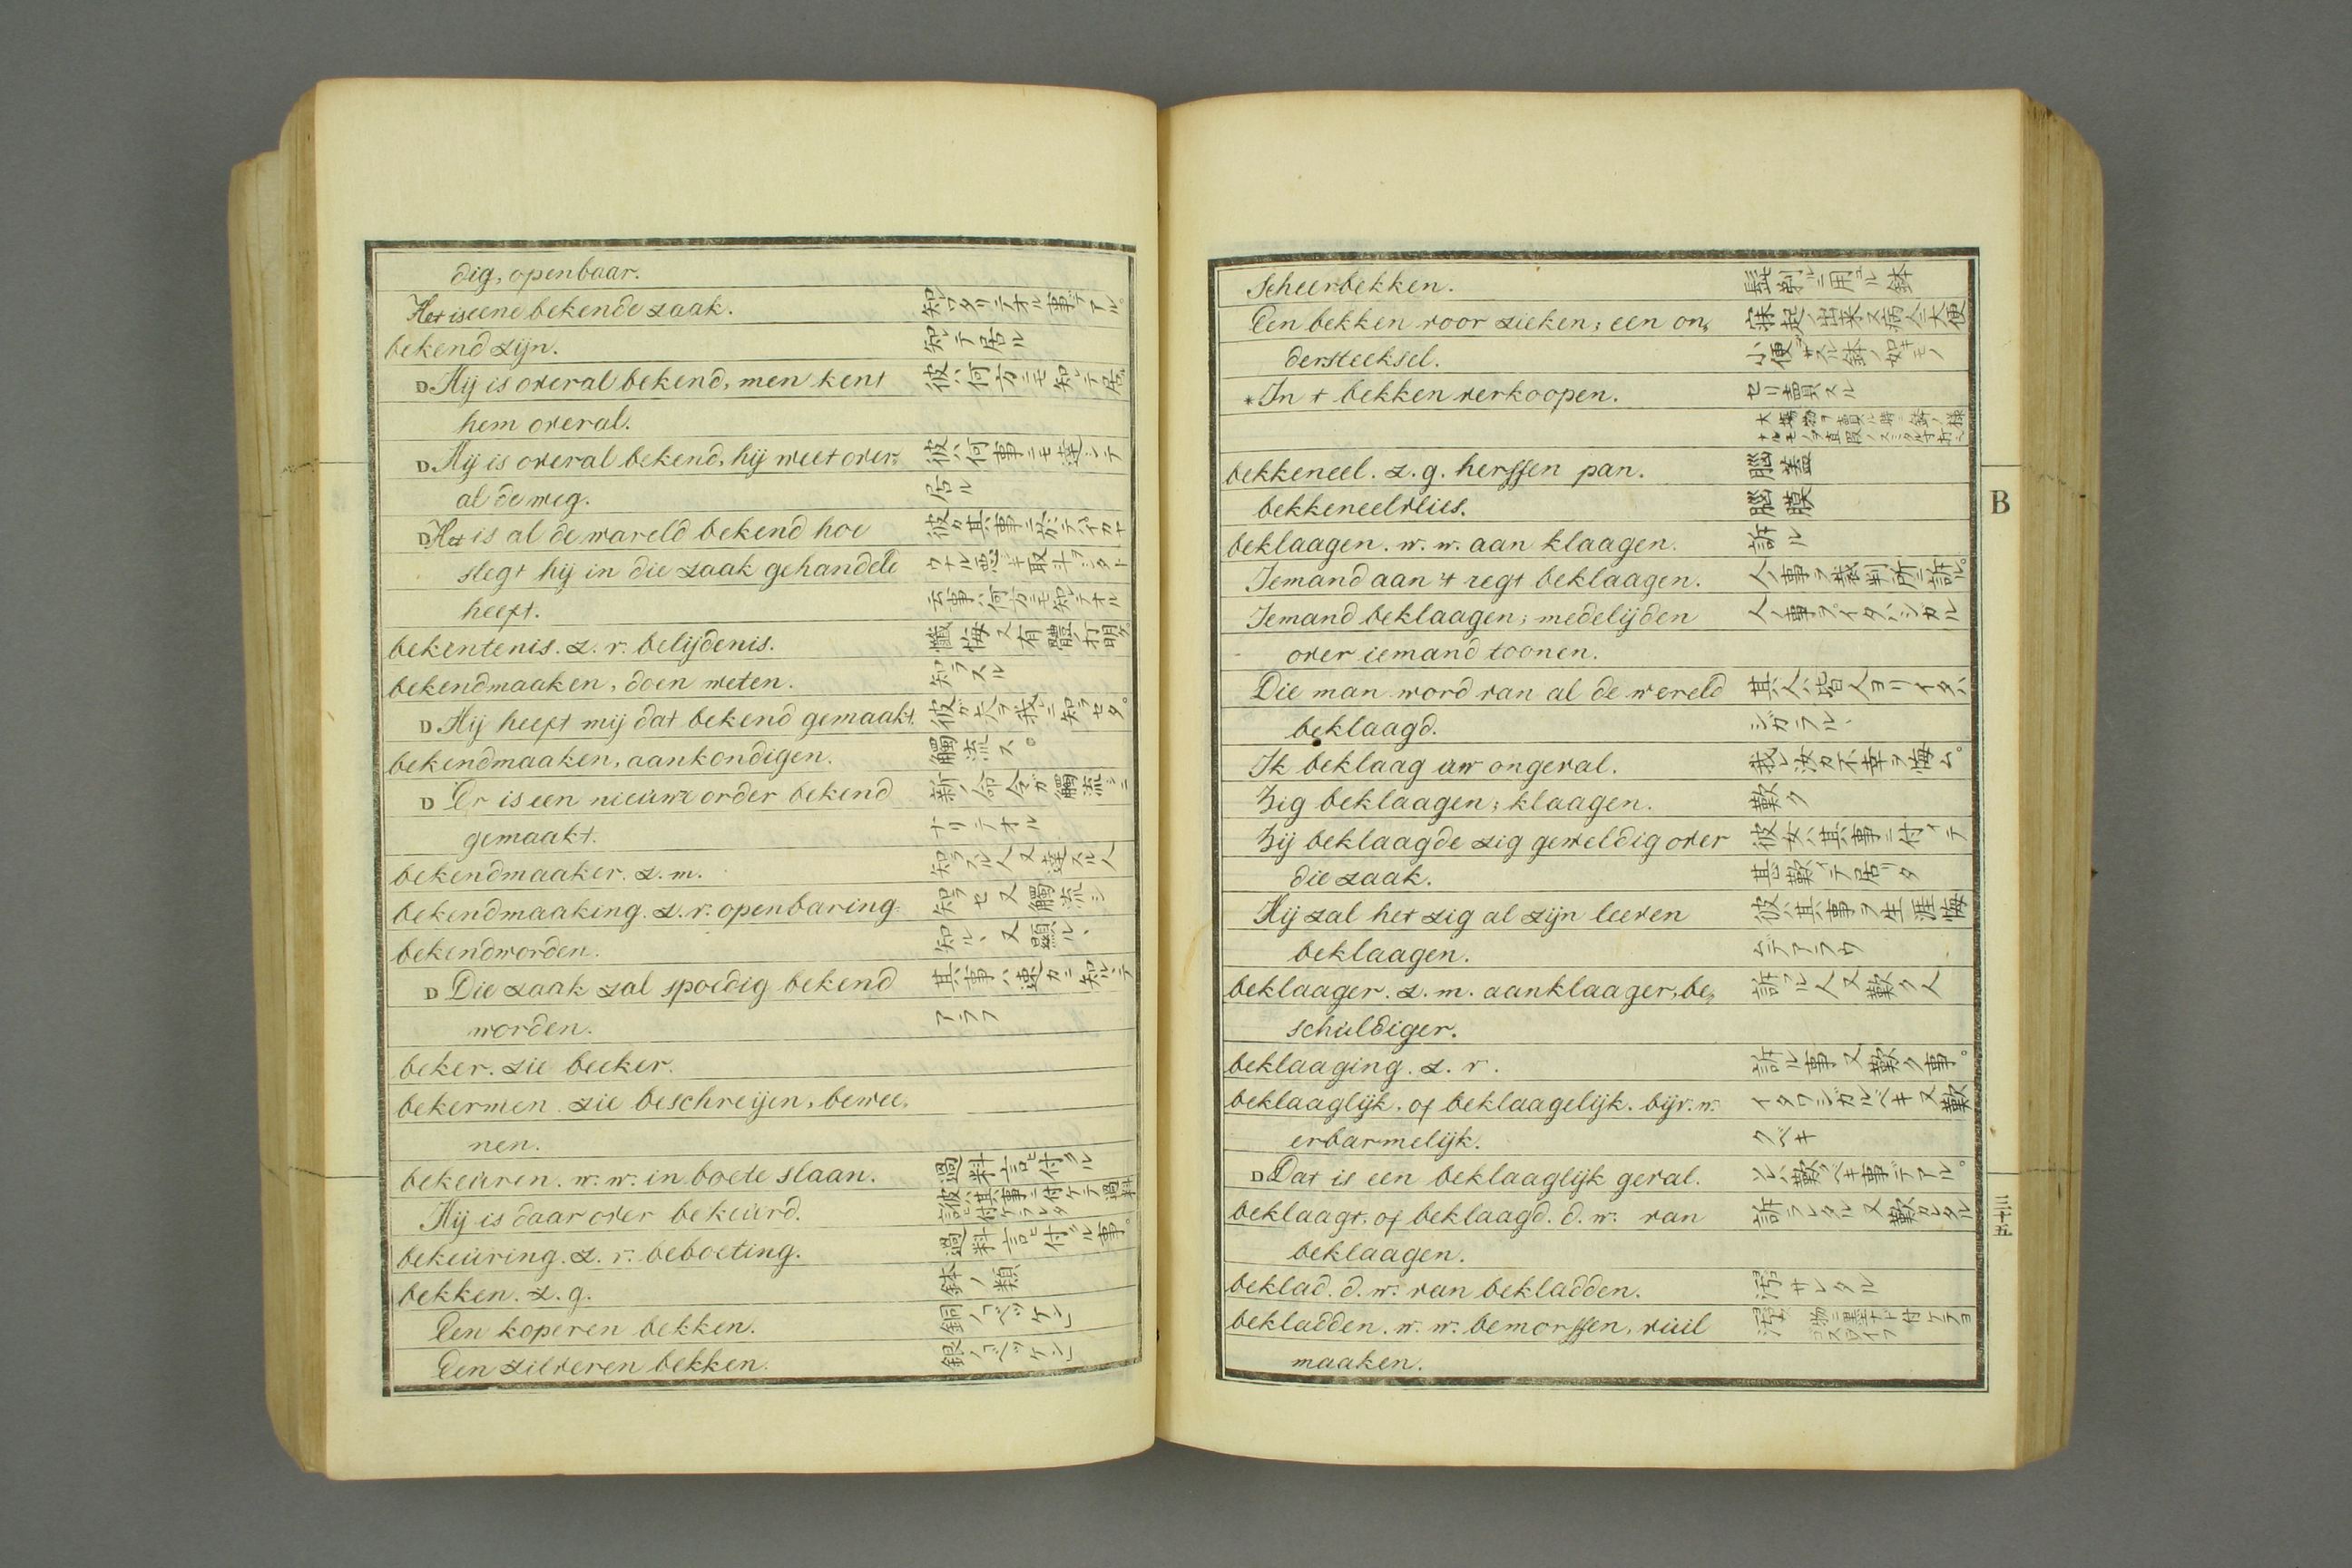 dig, openbaar.
Het is eene bekende zaak. 知ツタリテオル事デアル。
bekend zijn. 知ツテ居ル
D Hij is overal bekend, men kent 彼ハ何方ニモ知レテ居ル
hem overal.
D Hij is overal bekend, hij weet over- 彼ハ何事ニモ達シテ
al de weg. 居ル
D Het is al de wareld bekend hoe 彼ガ其事ニ於テイカヤ
slegt hij in die zaak gehandeld ウナル悪シキ取斗ヲシタト
heeft. 云事ハ何方ニモ知レテオル
bekentenis. z. v. belijdenis. 懺悔又有體ニ打明ケ。
bekendmaaken, doen weten. 知ラスル
D Hij heeft mij dat bekend gemaakt. 彼ガ夫ヲ我ニ知ラセタ。
bekendmaaken, aankondigen. 觸流ス。
D Er is een nieuwe order bekend 新ノ命令ガ觸流シニ
gemaakt. ナリテオル
bekendmaaker. z. m. 知ラスル人又達スル人
bekendmaaking. z. v. openbaring. 知ラセ又觸流シ
bekendworden. 知ルヽ又顯ルヽ
D Die zaak zal spoedig bekend 其事ハ速カニ知ルヽデ
worden. アラフ
beker. zie beeker.
bekermen. zie beschreijen, bewee-
nen.
bekeuren. w. w. in boete slaan. 過料言ヒ付クル
Hij is daar over bekeurd. 彼ハ其事ニ付ケテ過料言ヒ付ケラレタ
bekeuring. z. v. beboeting. 過料言ヒ付ル事。
bekken. z. g. 鉢ノ類
Een koperen bekken. 銅ノ「ベッケン」
Een zilveren bekken. 銀ノ「ベッケン」
Scheerbekken. 髭剃ルニ用ユル鉢
Een bekken voor zieken; een on- 寐起ノ出来ヌ病人ニ大便
dersteeksel. 小便サスル鉢ノ如キモノ
* In t bekken verkoopen. セリ賣スル
bekkeneel. z. g. herssen pan. 腦蓋
bekkeneelvlies. 腦膜
beklaagen. w. w. aan klaagen. 訴ル
Iemand aan 't regt beklaagen. 人ノ事ヲ裁判所ニ訴ル。
Iemand beklaagen; medelijden 人ノ事ヲイタハシガル
over iemand toonen.
Die man word van al de wereld 其人ハ皆人ヨリイタハ
beklaagd. シガラルヽ
Ik beklaag uw ongeval. 我レ汝ガ不幸ヲ悔ム。
Zig beklaagen; klaagen. 歎ク
Zij beklaagde zig geweldig over 彼女ハ其事ニ付イテ
die zaak. 甚歎イテ居リタ
Hij zal het zig al zijn leeven 彼ハ其事ヲ生涯悔
beklaagen. ムデアラウ
beklaager. z. m. aanklaager, be- 訴フル人又歎ク人
schuldiger.
beklaaging. z. v. 訴ル事又歎ク事。
beklaaglijk. of beklaagelijk. bijv. w. イタワシガルベキ又歎
erbarmelijk. クベキ
D Dat is een beklaaglijk geval. ソレハ歎クベキ事デアル。
beklaagt. of beklaagd. d. w. van 訴ラレタル又歎カレタル
beklaagen.
beklad. d. w. van bekladden. 汚サレタル
bekladden. w. w. bemorssen, vuil 汚ス
maaken.
B
三十五